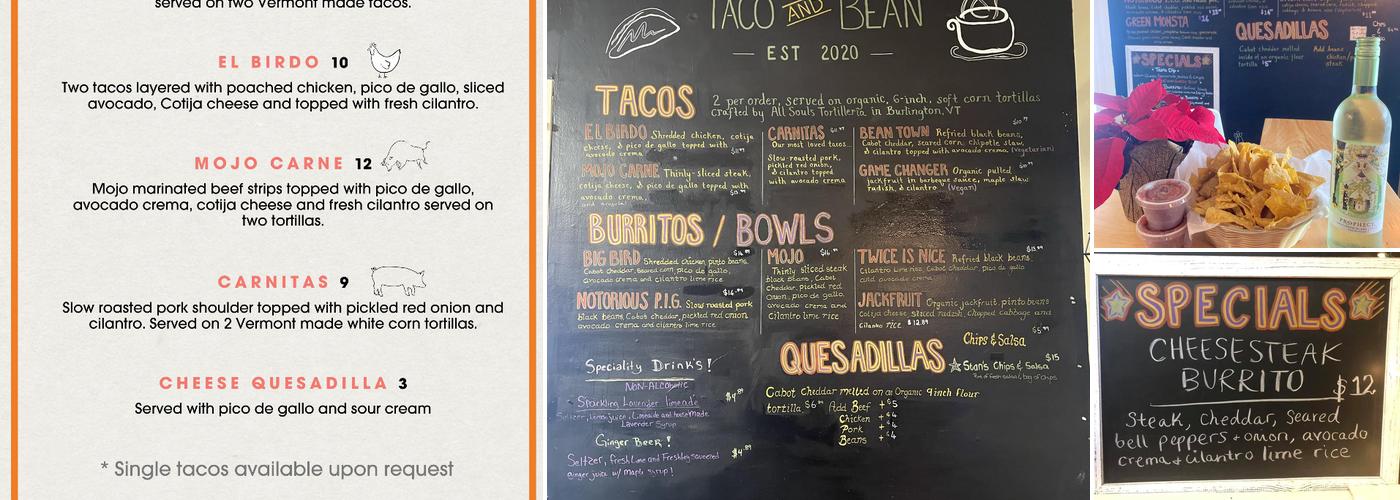 served on two Vermont made tacos.
EL BIRDO 10
Two tacos layered with poached chicken, pico de gallo, sliced
avocado, Cotija cheese and topped with fresh cilantro.
MOJO CARNE 12
Mojo marinated beef strips topped with pico de gallo,
avocado crema, cotija cheese and fresh cilantro served on
two tortillas.
CARNITAS 9
Slow roasted pork shoulder topped with pickled red onion and
cilantro. Served on 2 Vermont made white corn tortillas.
CHEESE QUESADILLA 3
Served with pico de gallo and sour cream
* Single tacos available upon request
TACO AND BEAN
EST 2020
TACOS
2 per order, served on organic, 6-inch, soft corn tortillas
crafted by All Souls Tortilleria in Burlington, VT
EL BIRDO Shredded chicken, cotija
cheese, & pico de gallo topped with
avocado crema
MOJO CARNE Thinly-sliced steak,
cotija cheese, & pico de gallo topped with
avocado crema
CARNITAS
Our most loved tacos
Slow-roasted pork,
pickled red onion,
& cilantro topped
with avocado crema
BEAN TOWN Refried black beans,
Cabot cheddar, seared corn, chipotle slaw,
& cilantro topped with avocado crema (Vegetarian)
GAME CHANGER Organic pulled
jackfruit in barbeque sauce, maple slaw
radish, & cilantro (Vegan)
BURRITOS / BOWLS
BIG BIRD Shredded chicken, pinto beans,
Cabot cheddar, seared corn, pico de gallo,
avocado crema and cilantro lime rice
NOTORIOUS P.I.G. Slow roasted pork
black beans, Cabot cheddar, pickled red onion,
avocado crema and cilantro lime rice
MOJO
Thinly sliced steak
black beans, Cabot
cheddar, pickled red
onion, pico de gallo,
avocado crema and
Cilantro lime rice
TWICE IS NICE Refried black beans,
Cilantro lime rice, Cabot cheddar, pico de gallo
and avocado crema
JACKFRUIT Organic jackfruit, pinto beans
Cotija cheese sliced radish, chopped cabbage and
Cilantro rice $12.89
Speciality Drink's!
NON-ALCOHOLIC
Sparkling Lavender limeade $4.89
Seltzer, lemon juice, Limeade and house Made
Lavender Syrup
Ginger Beer!
$4.89
Seltzer, fresh Lime and Freshly squeezed
ginger juice w/ maple syrup!
QUESADILLAS
Cabot cheddar melted on an Organic 9inch flour
tortilla $6 Add Beef +$5
Chicken +$4
Pork +$4
Beans +$4
Chips & Salsa $5
Stan's Chips & Salsa $15
GREEN MONSTA $16
QUESADILLAS
Cabot cheddar melted
inside of an organic flour
tortilla $5
Add beans
chicken/
steak
SPECIALS
PROPHECY
SPECIALS
CHEESESTEAK
BURRITO $12
Steak, Cheddar, Seared
bell peppers + onion, avocado
crema + cilantro lime rice